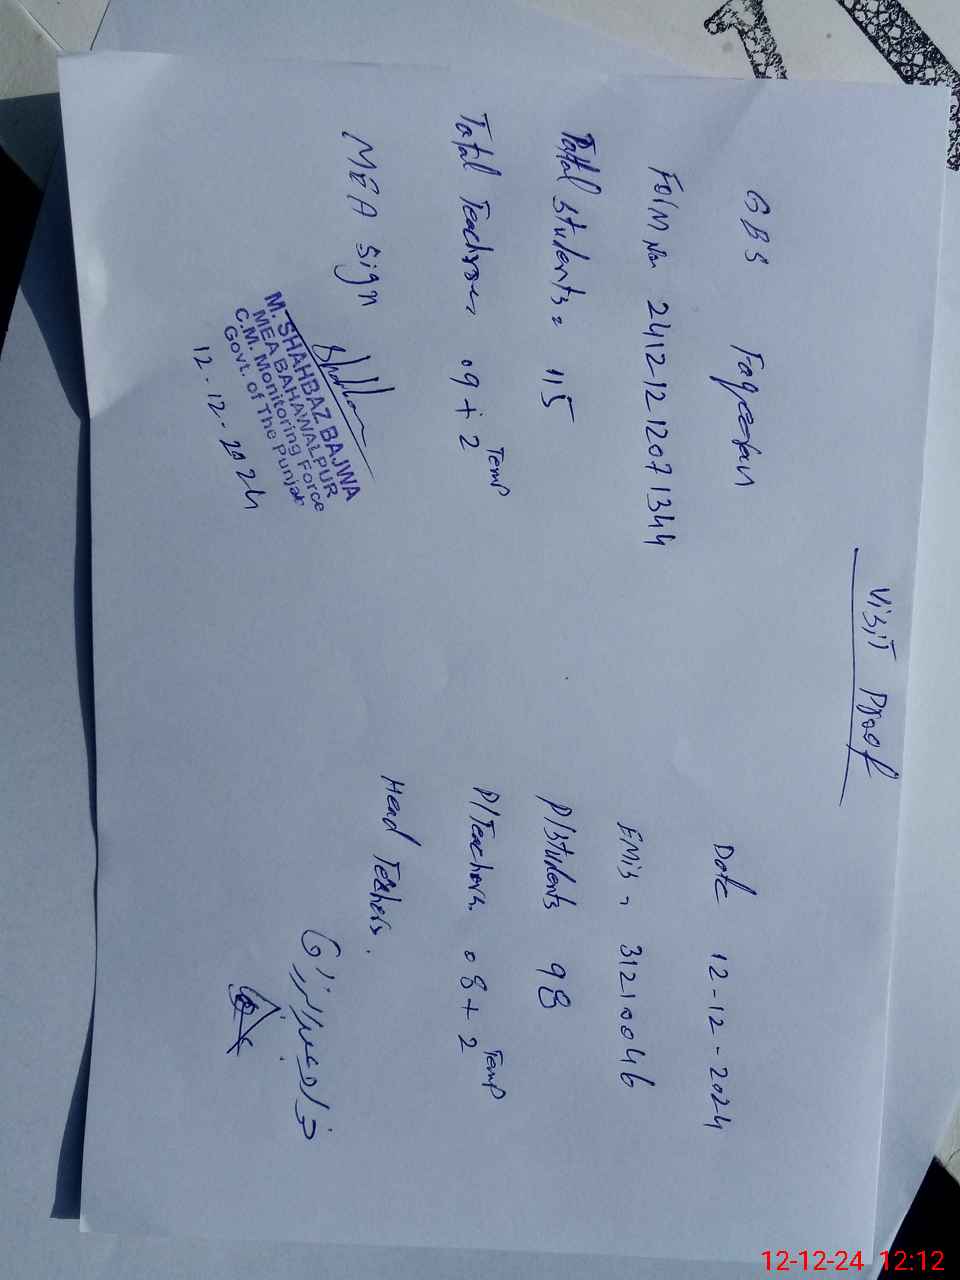 Visit Proof
GBS Faqeeran Date 12-12-2024
Form No. 24121212071344 EMIS = 31210046
Total Students = 115 P/Students 98
Total Teachers 09 + 2 Temp P/Teachers. 08 + 2 Temp
MEA Sign Head Teachers.
M. SHAHBAZ BAJWA
MEA BAHAWALPUR
C.M. Monitoring Force
Govt. of The Punjab
12-12-2024
12-12-24 12:12